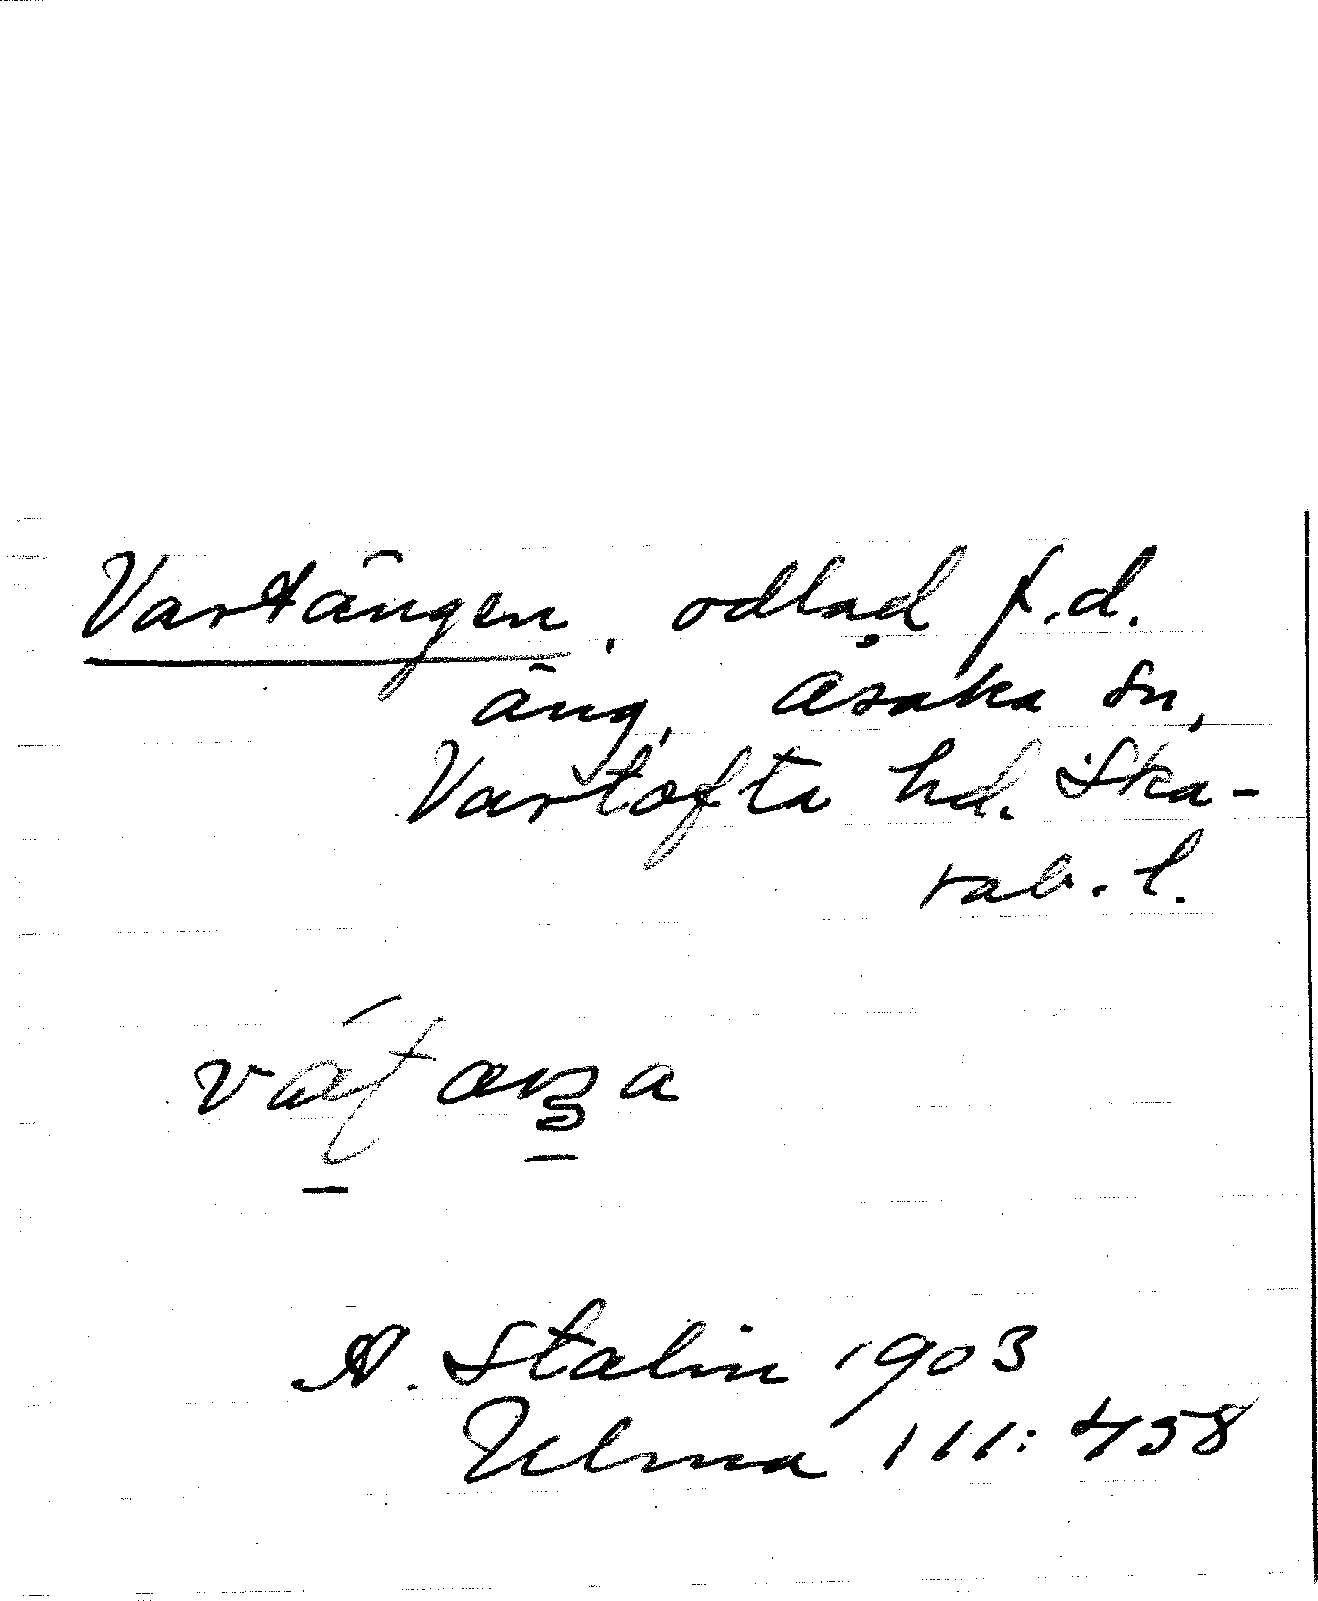 Vartängen, odlad f.d.
äng, Åsaka sn,
Vartofta hd. Ska-
rab. l.
A. Stalin 1903
Ulma 111:458